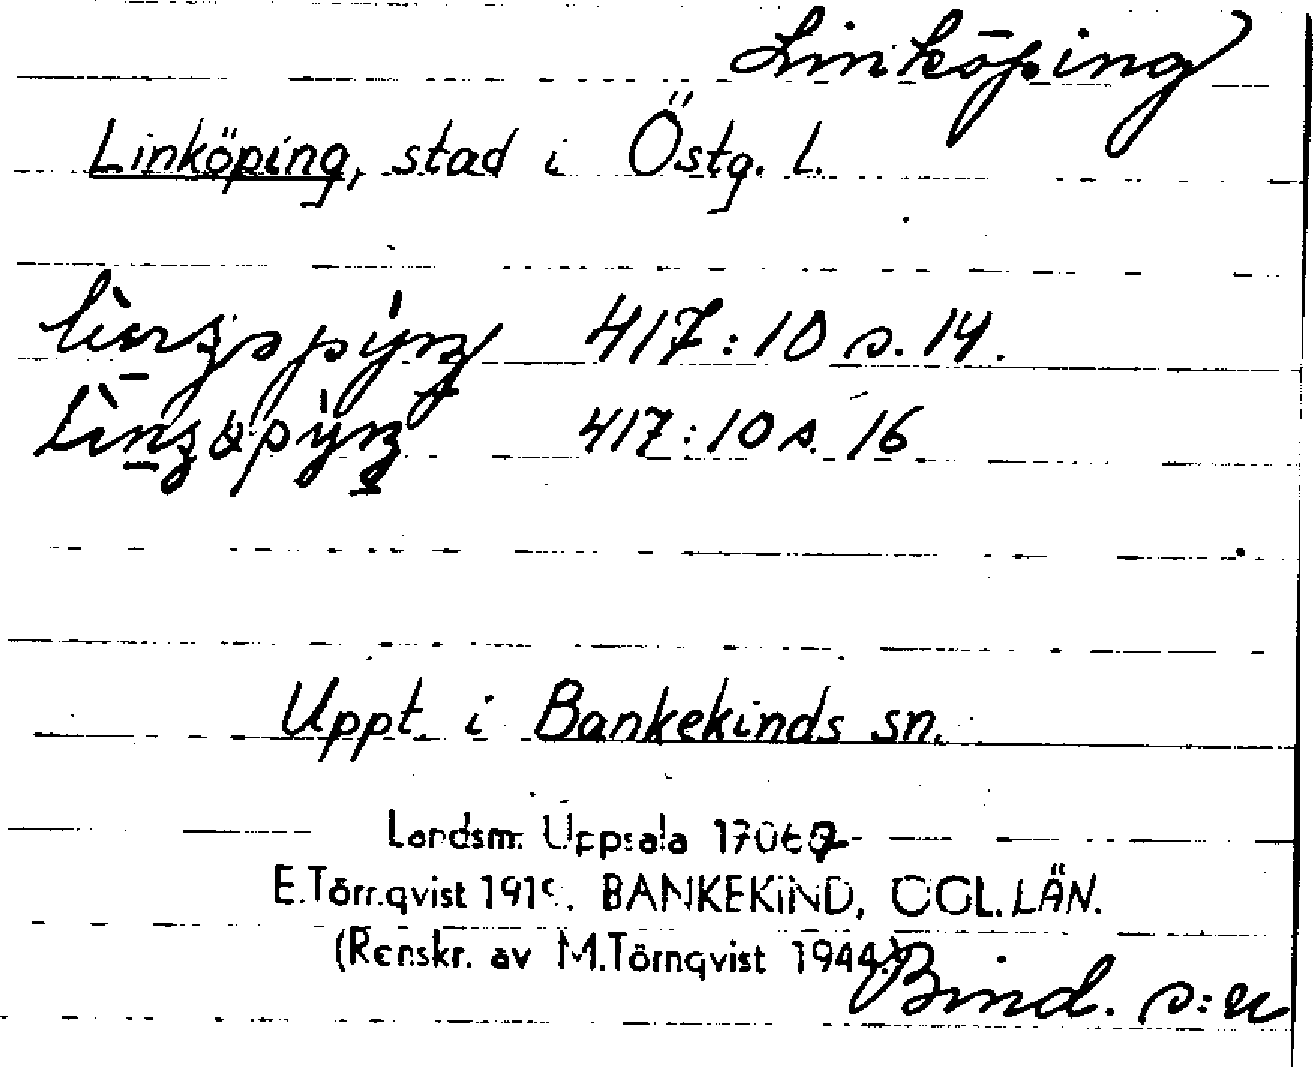 Linköping
Linköping, stad i Östg. L.
417:10 s. 14.
417:10 s. 16
Uppt. i Bankekinds sn.
Landsm. Uppsala
E. Törnqvist BANKEKIND, ÖGL. LÄN.
(Renskr. av M. Törnqvist 1944.)
Bind. s:n